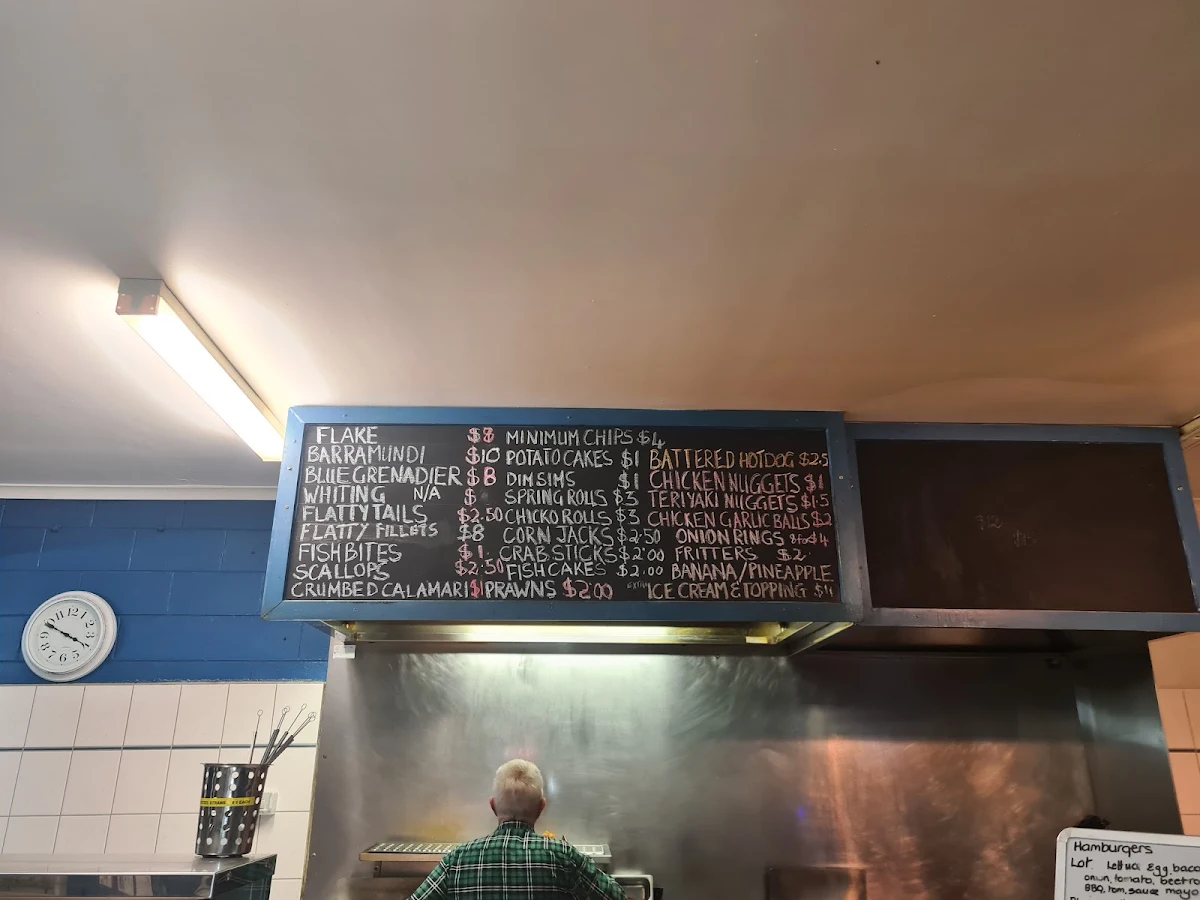 FLAKE $8
BARRAMUNDI $10
BLUE GRENADIER $8
WHITING N/A $
FLATTY TAILS $2.50
FLATTY FILLETS $8
FISH BITES $1.
SCALLOPS $2.50
CRUMBED CALAMARI $1
MINIMUM CHIPS $4
POTATO CAKES $1
DIM SIMS $1
SPRING ROLLS $3
CHICKO ROLLS $3
CORN JACKS $2.50
CRAB STICKS $2.00
FISH CAKES $2.00
PRAWNS $2.00
BATTERED HOTDOG $2.5
CHICKEN NUGGETS $1
TERIYAKI NUGGETS $1.5
CHICKEN GARLIC BALLS $2
ONION RINGS 8 for $4
FRITTERS $2
BANANA/PINEAPPLE
ICE CREAM & TOPPING $4
12 1 2 3 4 5 6 7 8 9 10 11
Hamburgers
Lot Lettuce Egg, baco
onion, tomato, beetro
BBQ, tom, sauce mayo